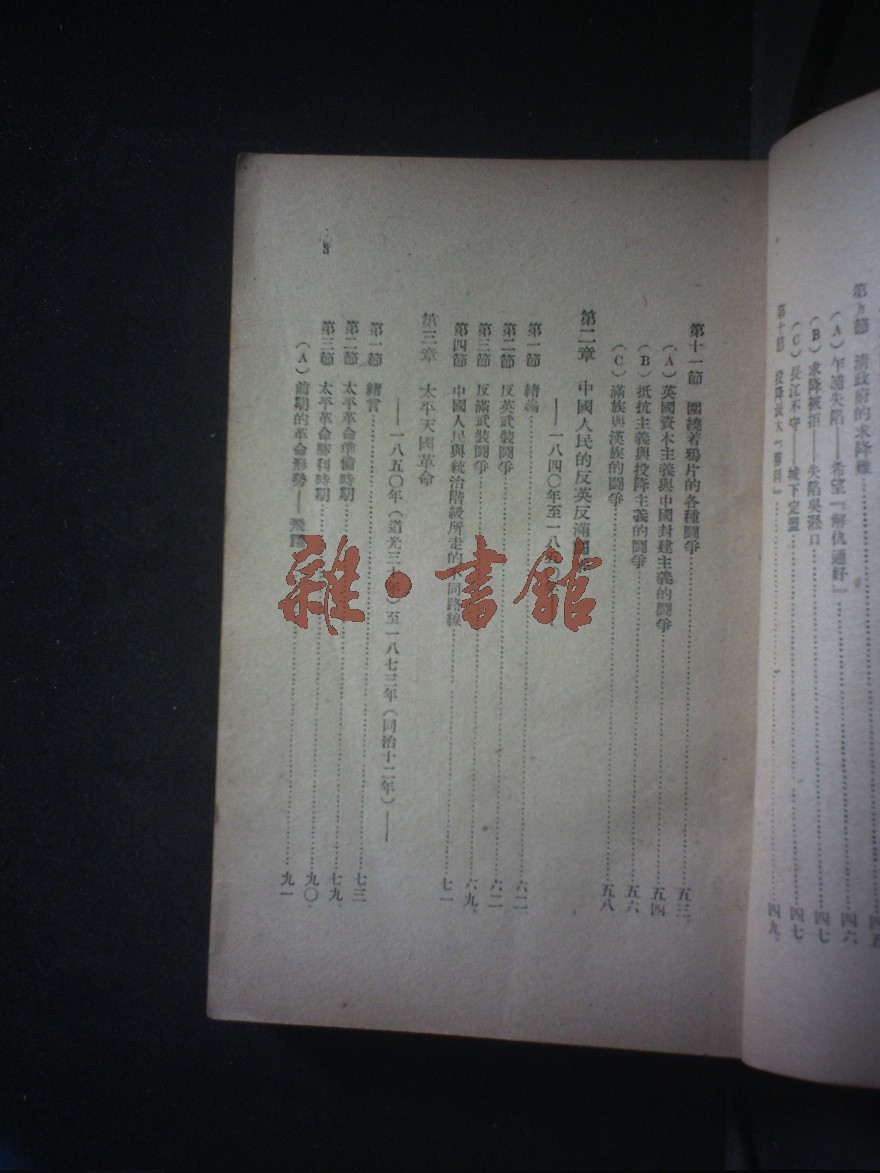 清政府的求降難
（A）乍浦失陷——希望『解仇通好』……四六
（B）求降被拒——失陷吳淞口……四七
（C）長江不守——城下定盟……四七
第十節 投降派大『勝利』……四九
第十一節 圍繞着鴉片的各種鬪爭……五三
（A）英國資本主義與中國封建主義的鬪爭……五四
（B）抵抗主義與投降主義的鬪爭……五六
（C）滿族與漢族的鬪爭……五八
第二章 中國人民的反英反滿
——一八四〇年至一八五
第一節 緒論……六二
第二節 反英武裝鬪爭……六二
第三節 反滿武裝鬪爭……六九
第四節 中國人民與統治階級所走的不同路線……七一
第三章 太平天國革命
——一八五〇年（道光三十年）至一八七三年（同治十二年）——
第一節 緒言……七三
第二節 太平革命準備時期……七九
第三節 太平革命勝利時期……九〇
（A）前期的革命形勢——飛躍……九一
雜·書館